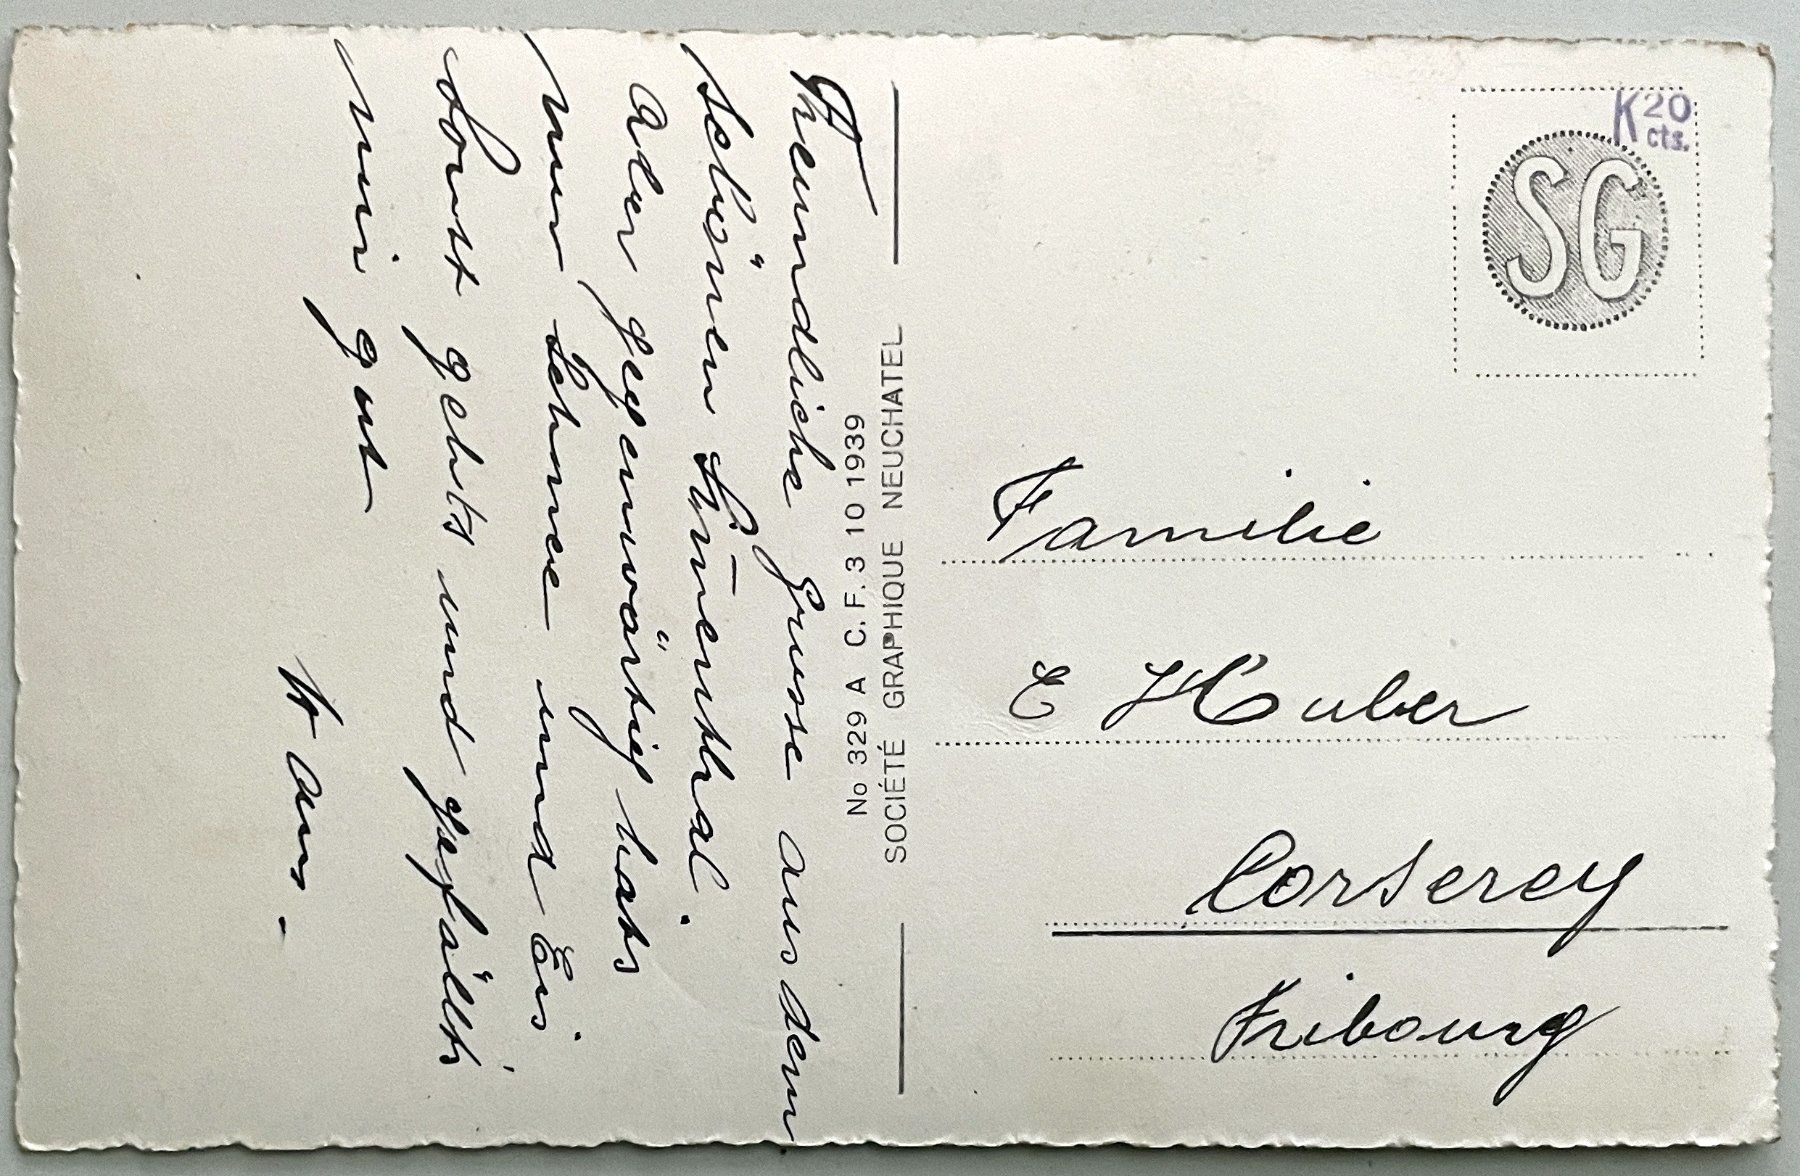 Freundliche Grüsse aus dem
schönen Simenthal.
Aber gegenwärtig hats
nur Schnee und Eis.
Sonst gehts und gefällts
mir gut
Hans.
No 329 A C. F. 3 10 1939
SOCIÉTÉ GRAPHIQUE NEUCHATEL
K 20
cts.
SG
Familie
E Huber
Corserey
Fribourg